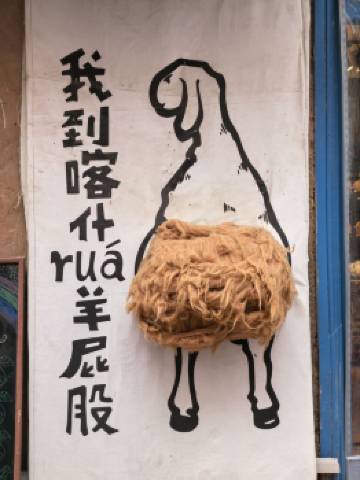 我到喀什ruá羊屁股